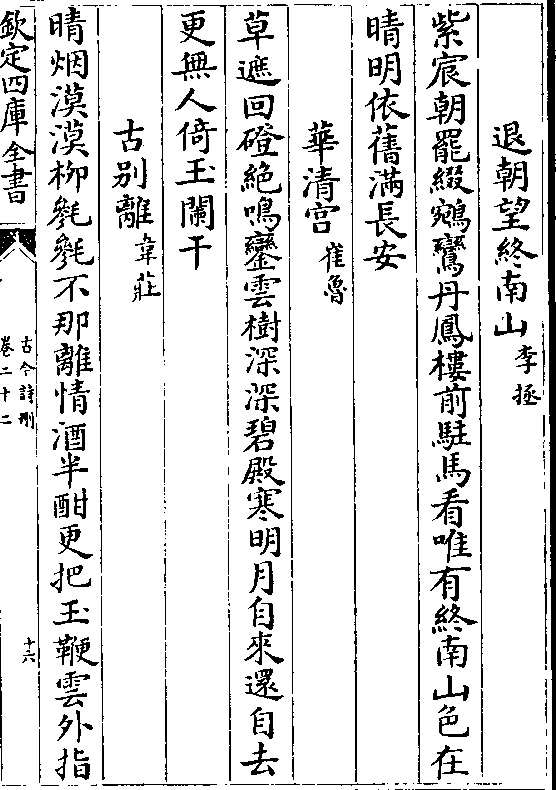 退朝望終南山李拯
紫宸朝罷綴鵷鸞丹鳳樓前駐馬看唯有終南山色在
晴明依舊滿長安
華清宫崔魯
草遮回磴絶鳴鑾雲樹深深碧殿寒明月自來還自去
更無人倚玉闌干
古别離韋莊
晴烟漠漠柳毿毿不那離情酒半酣更把玉鞭雲外指
欽定四庫全書
古今詩刪
卷二十二
十六